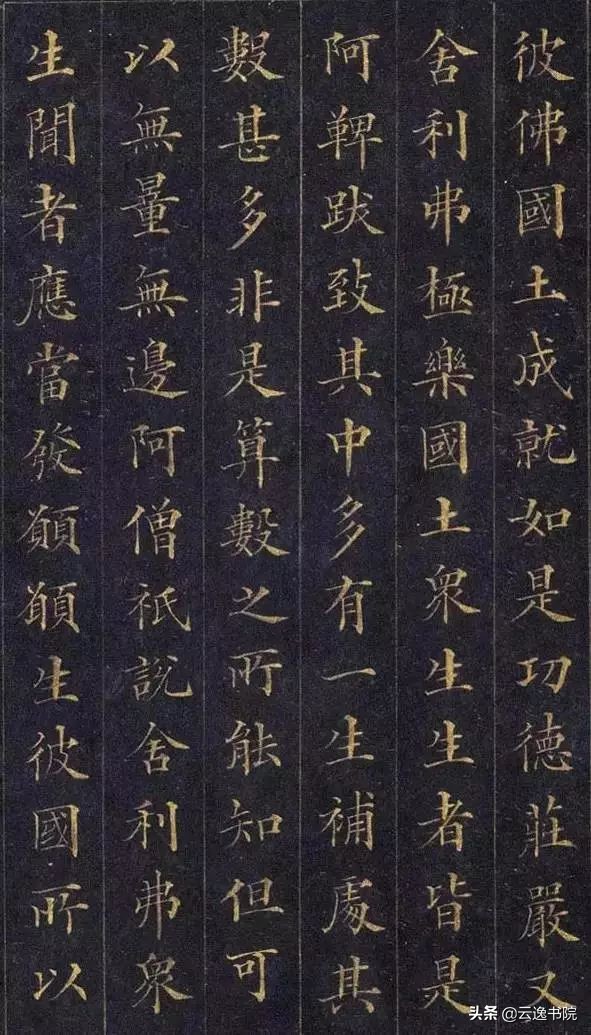 彼佛國土成就如是功德莊嚴又
舍利弗極樂國土眾生生者皆是
阿鞞跋致其中多有一生補處其
數甚多非是算數之所能知但可
以無量無邊阿僧祇說舍利弗眾
生聞者應當發願願生彼國所以
头条 @云逸书院